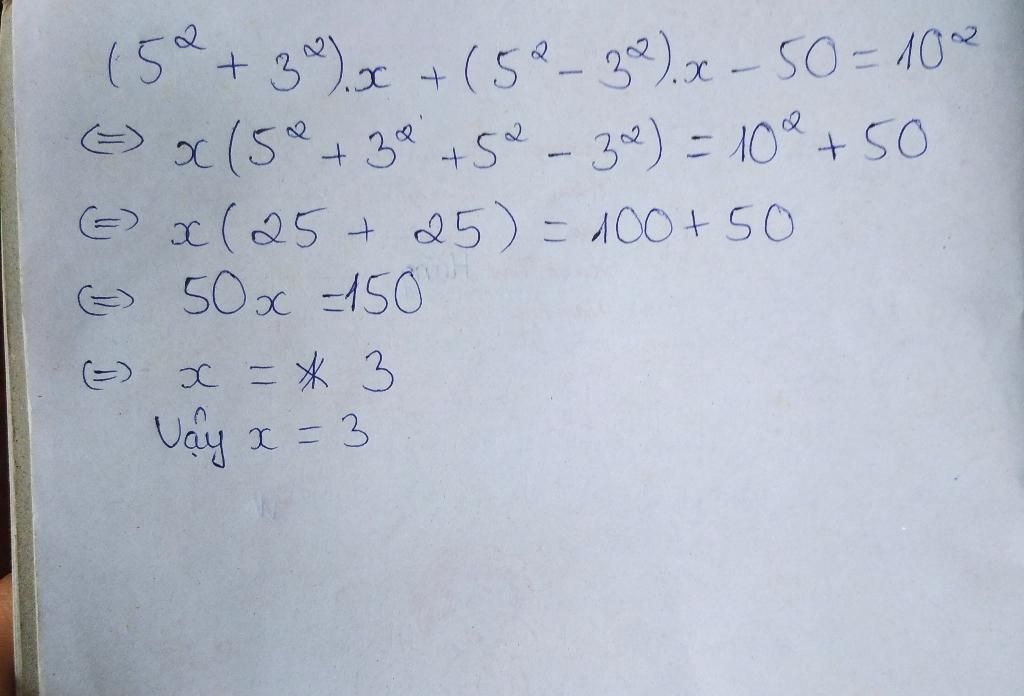 (5² + 3²).x + (5² - 3²).x - 50 = 10²
(=) x(5² + 3² + 5² - 3²) = 10² + 50
(=) x(25 + 25) = 100 + 50
(=) 50x = 150
(=) x = 3
Vậy x = 3